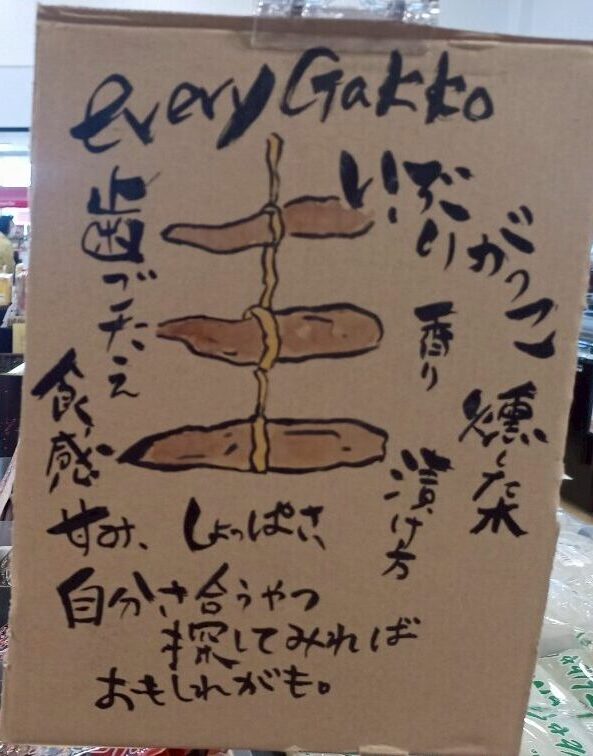 every Gakko
いぶりがっこ
燻した木
香り
漬け方
歯ごたえ
食感
甘み、しょっぱさ、
自分さ合うやつ
探してみれば
おもしれがも。